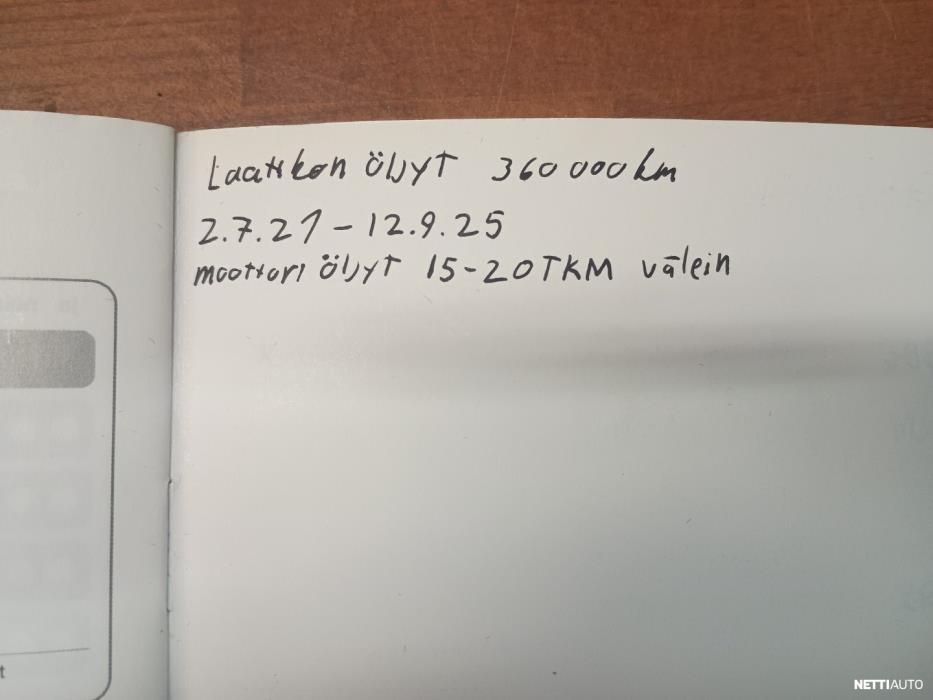 Laatikon öljyt 360 000 km
2.7.21 - 12.9.25
moottori öljyt 15-20TKM välein
t
NETTIAUTO